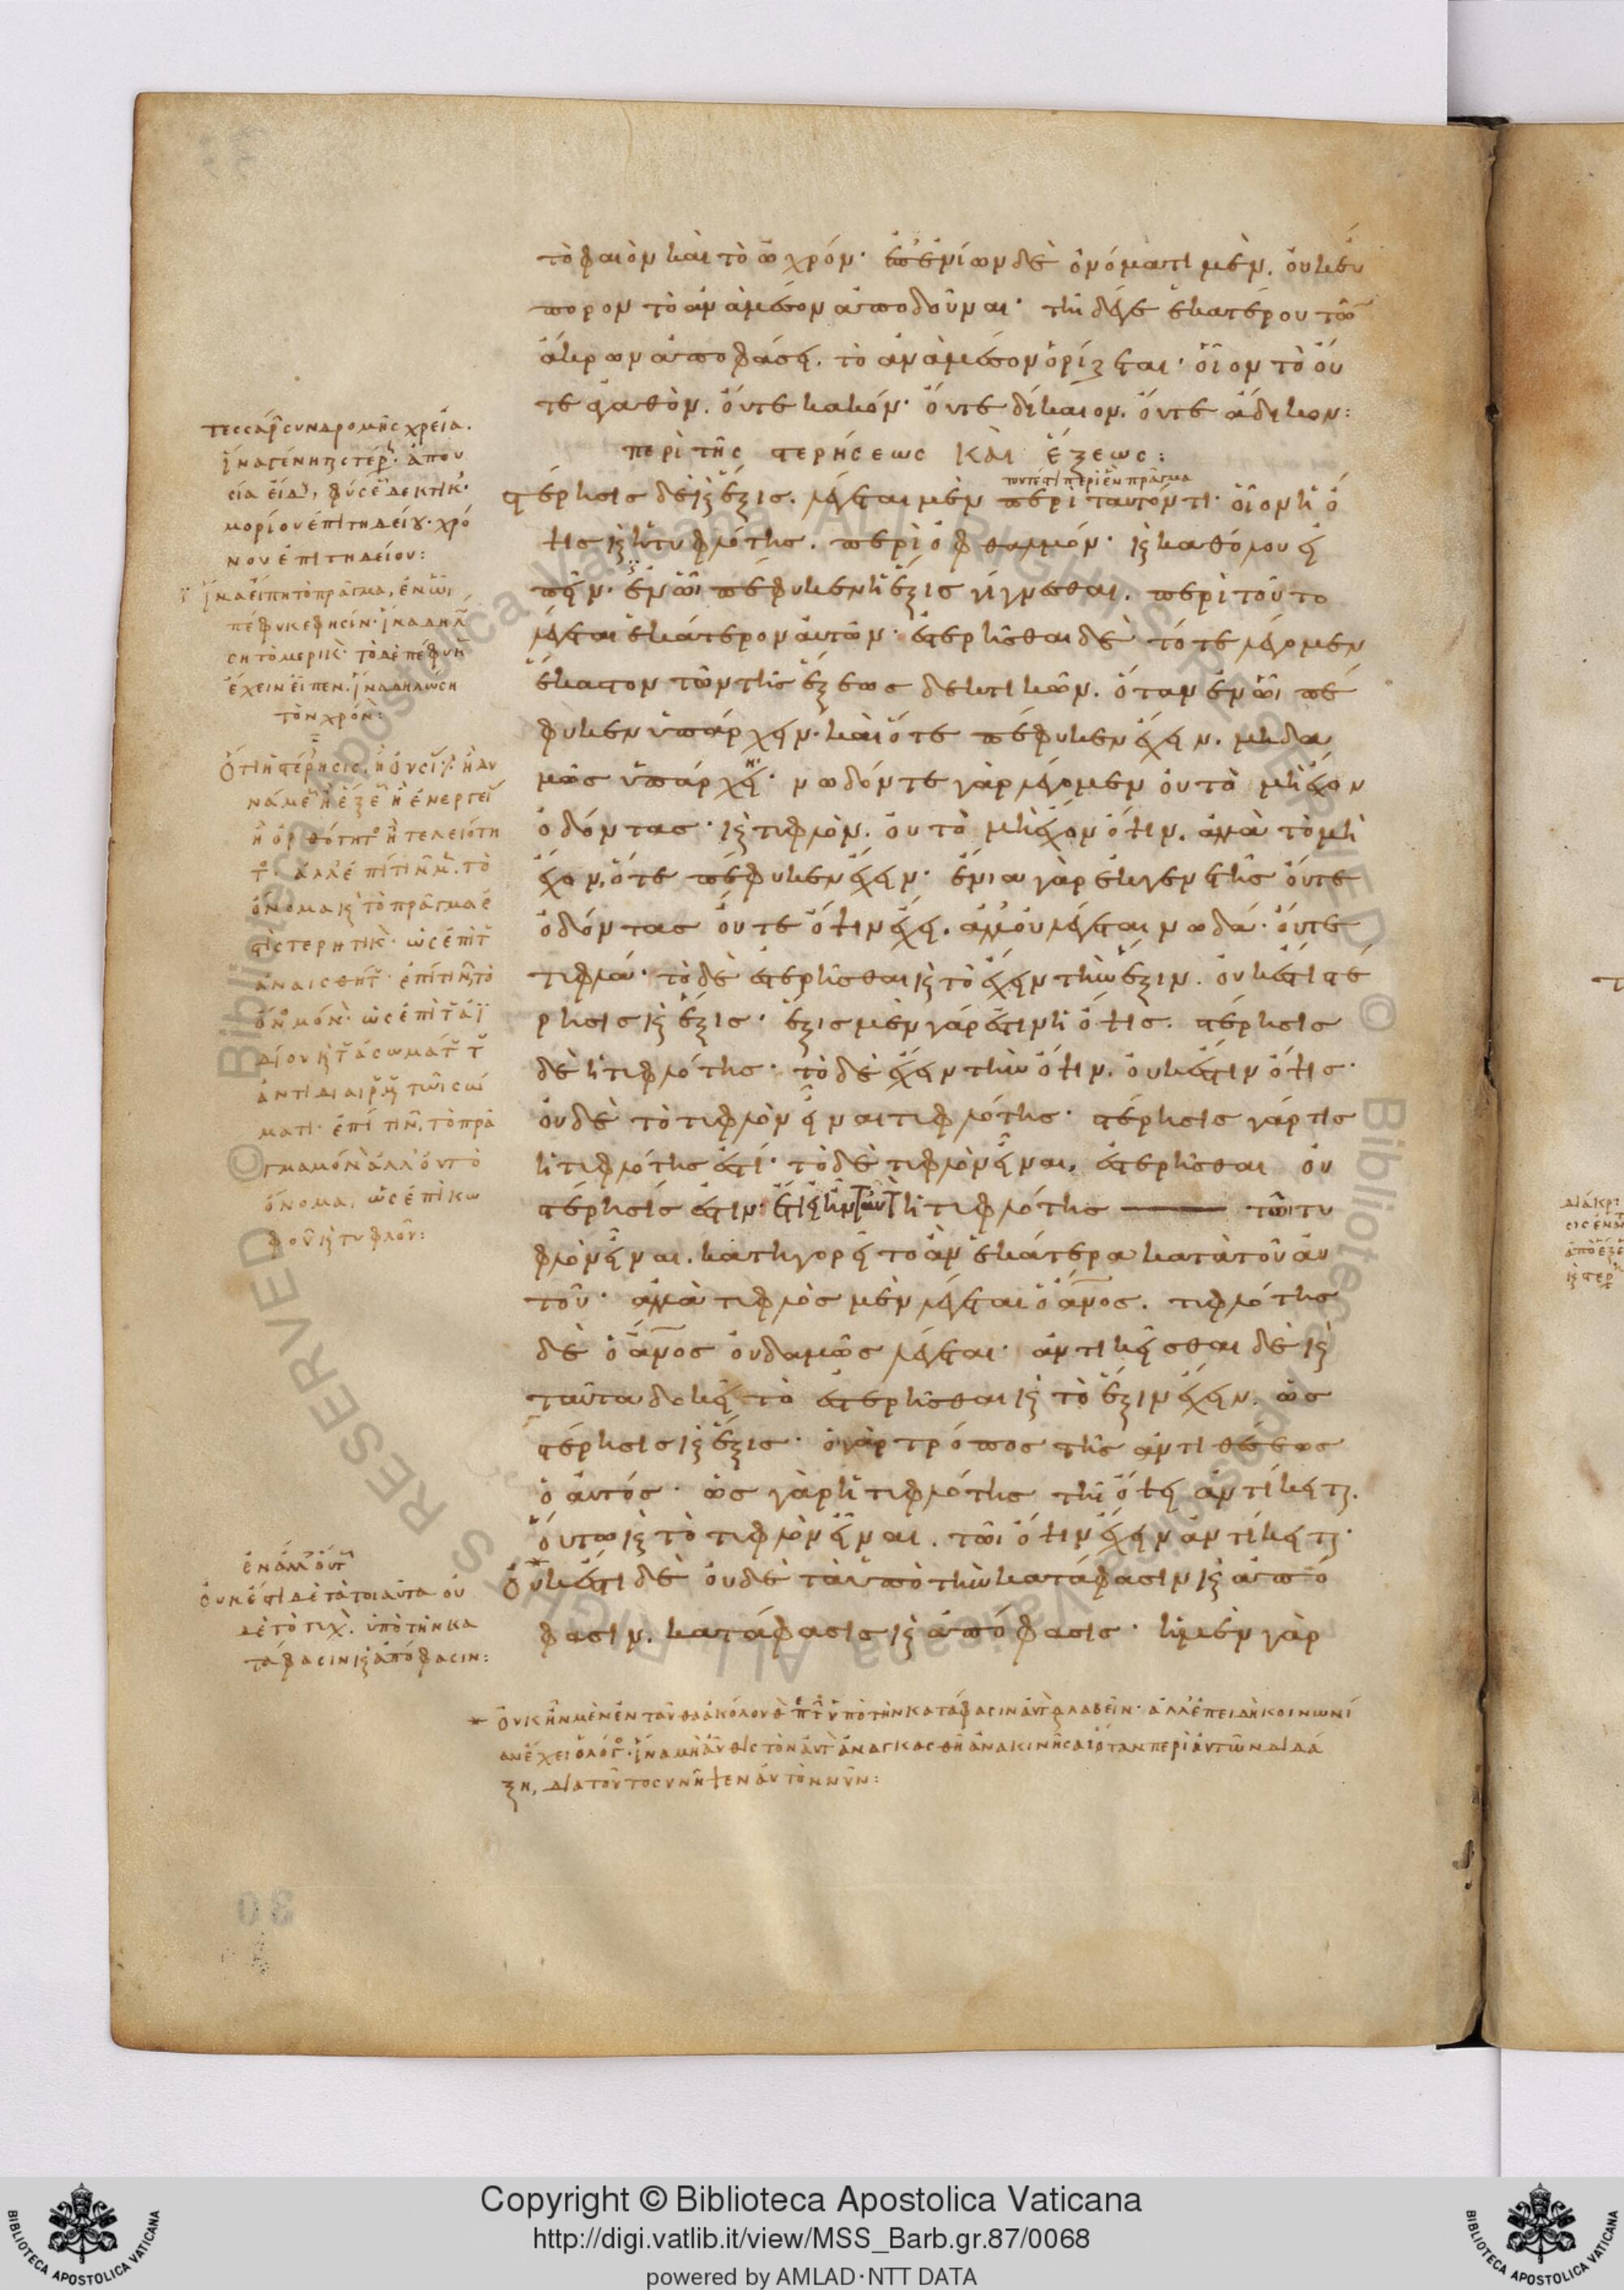 τὸ φαιὸν καὶ τὸ ὠχρόν· ἐπ' ἐνίων δὲ ὀνόματι μὲν, οὐκ εὔ
πορον τὸ ἀνὰ μέσον ἀποδοῦναι· τῆ δέ γε ἑκατέρου τῶν
ἄκρων ἀποφάσει, τὸ ἀνὰ μέσον ὁρίζεται· οἷον τὸ οὔ
τε ἀγαθὸν, οὔτε κακόν· οὔτε δίκαιον, οὔτε ἄδικον:
περὶ τῆς στερήσεως καὶ ἕξεως:
τουτέστι περὶ ἓν πρᾶγμα
στέρησις δὲ καὶ ἕξις, λέγεται μὲν περὶ ταυτόν τι· οἷον ἡ ὄ
ψις καὶ ἡ τυφλότης, περὶ ὀφθαλμόν· καὶ καθόλου εἰ
πεῖν· ἐν ὧι πέφυκεν ἡ ἕξις γίγνεσθαι, περὶ τοῦτο
λέγεται ἑκάτερον αὐτῶν· ἐστερῆσθαι δὲ τότε λέγομεν
ἕκαστον τῶν τῆς ἕξεως δεκτικῶν, ὅταν ἐν ὧι πέ
φυκεν ὑπάρχειν· καὶ ὅτε πέφυκεν ἔχειν, μηδα
μῶς ὑπάρχῃ· νωδόν τε γὰρ λέγομεν οὐ τὸ μὴ ἔχον
ὀδόντας· καὶ τυφλὸν, οὐ τὸ μὴ ἔχον ὄψιν, ἀλλὰ τὸ μὴ
ἔχον, ὅτε πέφυκεν ἔχειν· ἔνια γὰρ ἐκ γενετῆς οὔτε
ὀδόντας οὔτε ὄψιν ἔχει, ἀλλ' οὐ λέγεται νωδά· οὔτε
τυφλά· τὸ δὲ ἐστερῆσθαι καὶ τὸ ἔχειν τὴν ἕξιν, οὐκ ἔστι στέ
ρησις καὶ ἕξις· ἕξις μὲν γάρ ἐστιν ἡ ὄψις, στέρησις
δὲ ἡ τυφλότης· τὸ δὲ ἔχειν τὴν ὄψιν, οὐκ ἔστιν ὄψις·
οὐδὲ τὸ τυφλὸν εἶναι τυφλότης· στέρησις γάρ τις
ἡ τυφλότης ἐστί· τὸ δὲ τυφλὸν εἶναι, ἐστερῆσθαι οὐ
στέρησίς ἐστιν· ἔτι εἰ ἦν ταὐτ ἡ τυφλότης τῶι τυ
φλὸν εἶναι, κατηγορεῖτο ἂν ἑκάτερα κατὰ τοῦ αὐ
τοῦ· ἀλλὰ τυφλὸς μὲν λέγεται ὁ ἄνος, τυφλότης
δὲ ὁ ἄνος οὐδαμῶς λέγεται· ἀντικεῖσθαι δὲ καὶ
ταῦτα δοκεῖ τὸ ἐστερῆσθαι καὶ τὸ ἕξιν ἔχειν, ὡς
στέρησις καὶ ἕξις· ὁ γὰρ τρόπος τῆς ἀντιθέσεως
ὁ αὐτός· ὡς γὰρ ἡ τυφλότης τῆ ὄψει ἀντίκειται,
οὕτω καὶ τὸ τυφλὸν εἶναι, τῶι ὄψιν ἔχειν ἀντίκειται·
Οὐκ ἔστι δὲ οὐδὲ τὸ ὑπὸ τὴν κατάφασιν καὶ ἀπό
φασιν, κατάφασις καὶ ἀπόφασις· ἡ μὲν γὰρ
τεσσάρ συνδρομῆς χρεία,
ἵνα γένηται στέρ· ἀπου
σία εἴδ, φύσε δεκτικ·
μορίου ἐπιτηδείου· χρό
νου ἐπιτηδείου:
ἵνα εἴπη τὸ πρᾶγμα, ἐν ὧι
πέφυκε φησίν· ἵνα δηλ
ση τὸ μερικ· τὸ δὲ πέφυκ
ἔχειν εἶπεν, ἵνα δηλώση
τὸν χρόν:
Ὅτι ἡ στέρησις, ἢ οὐσι ἢ δυ
νάμε ἢ ἕξε ἢ ἐνεργεί
ἢ ὀρθότητο ἢ τελειότη
το· ἀλλ' ἐπί τινων τὸ
ὄνομα καὶ τὸ πρᾶγμα ἐ
στὶ στερητικ· ὡς ἐπὶ τ
ἀναισθητ· ἐπί τιν τὸ
ὄνο μόν· ὡς ἐπὶ τ ἀϊ
δίου καὶ τ ἀσωμάτ τ
ἀντιδιαιρ τῶι σώ
ματι· ἐπί τιν, τὸ πρᾶ
γμα μόν ἀλλ' οὐ τὸ
ὄνομα, ὡς ἐπὶ κω
φοῦ καὶ τυφλοῦ:
ἐν ἄλλ οὕτ
Οὐκ ἔστι δὲ τὰ τοιαῦτα οὐ
δὲ τὸ τυχ, ὑπὸ τὴν κα
τάφασιν καὶ ἀπόφασιν:
Οὐκ ἦν μὲν ἐνταῦθα ἀκόλουθ περὶ τ ὑπὸ τὴν κατάφασιν ἀντ λαβεῖν· ἀλλ' ἐπειδὴ κοινωνί
αν ἔχει ὁ λόγο· ἵνα μὴ αὖθις τὸν αὐτ ἀναγκασθῆ ἀνακινῆσαι ὅταν περὶ αὐτῶν διδά
ξη, διὰ τοῦτο συνῆψεν αὐτὸν νῦν:
30
Copyright © Biblioteca Apostolica Vaticana
http://digi.vatlib.it/view/MSS_Barb.gr.87/0068
powered by AMLAD·NTT DATA
BIBLIOTECA APOSTOLICA VATICANA
BIBLIOTECA APOSTOLICA VATICANA